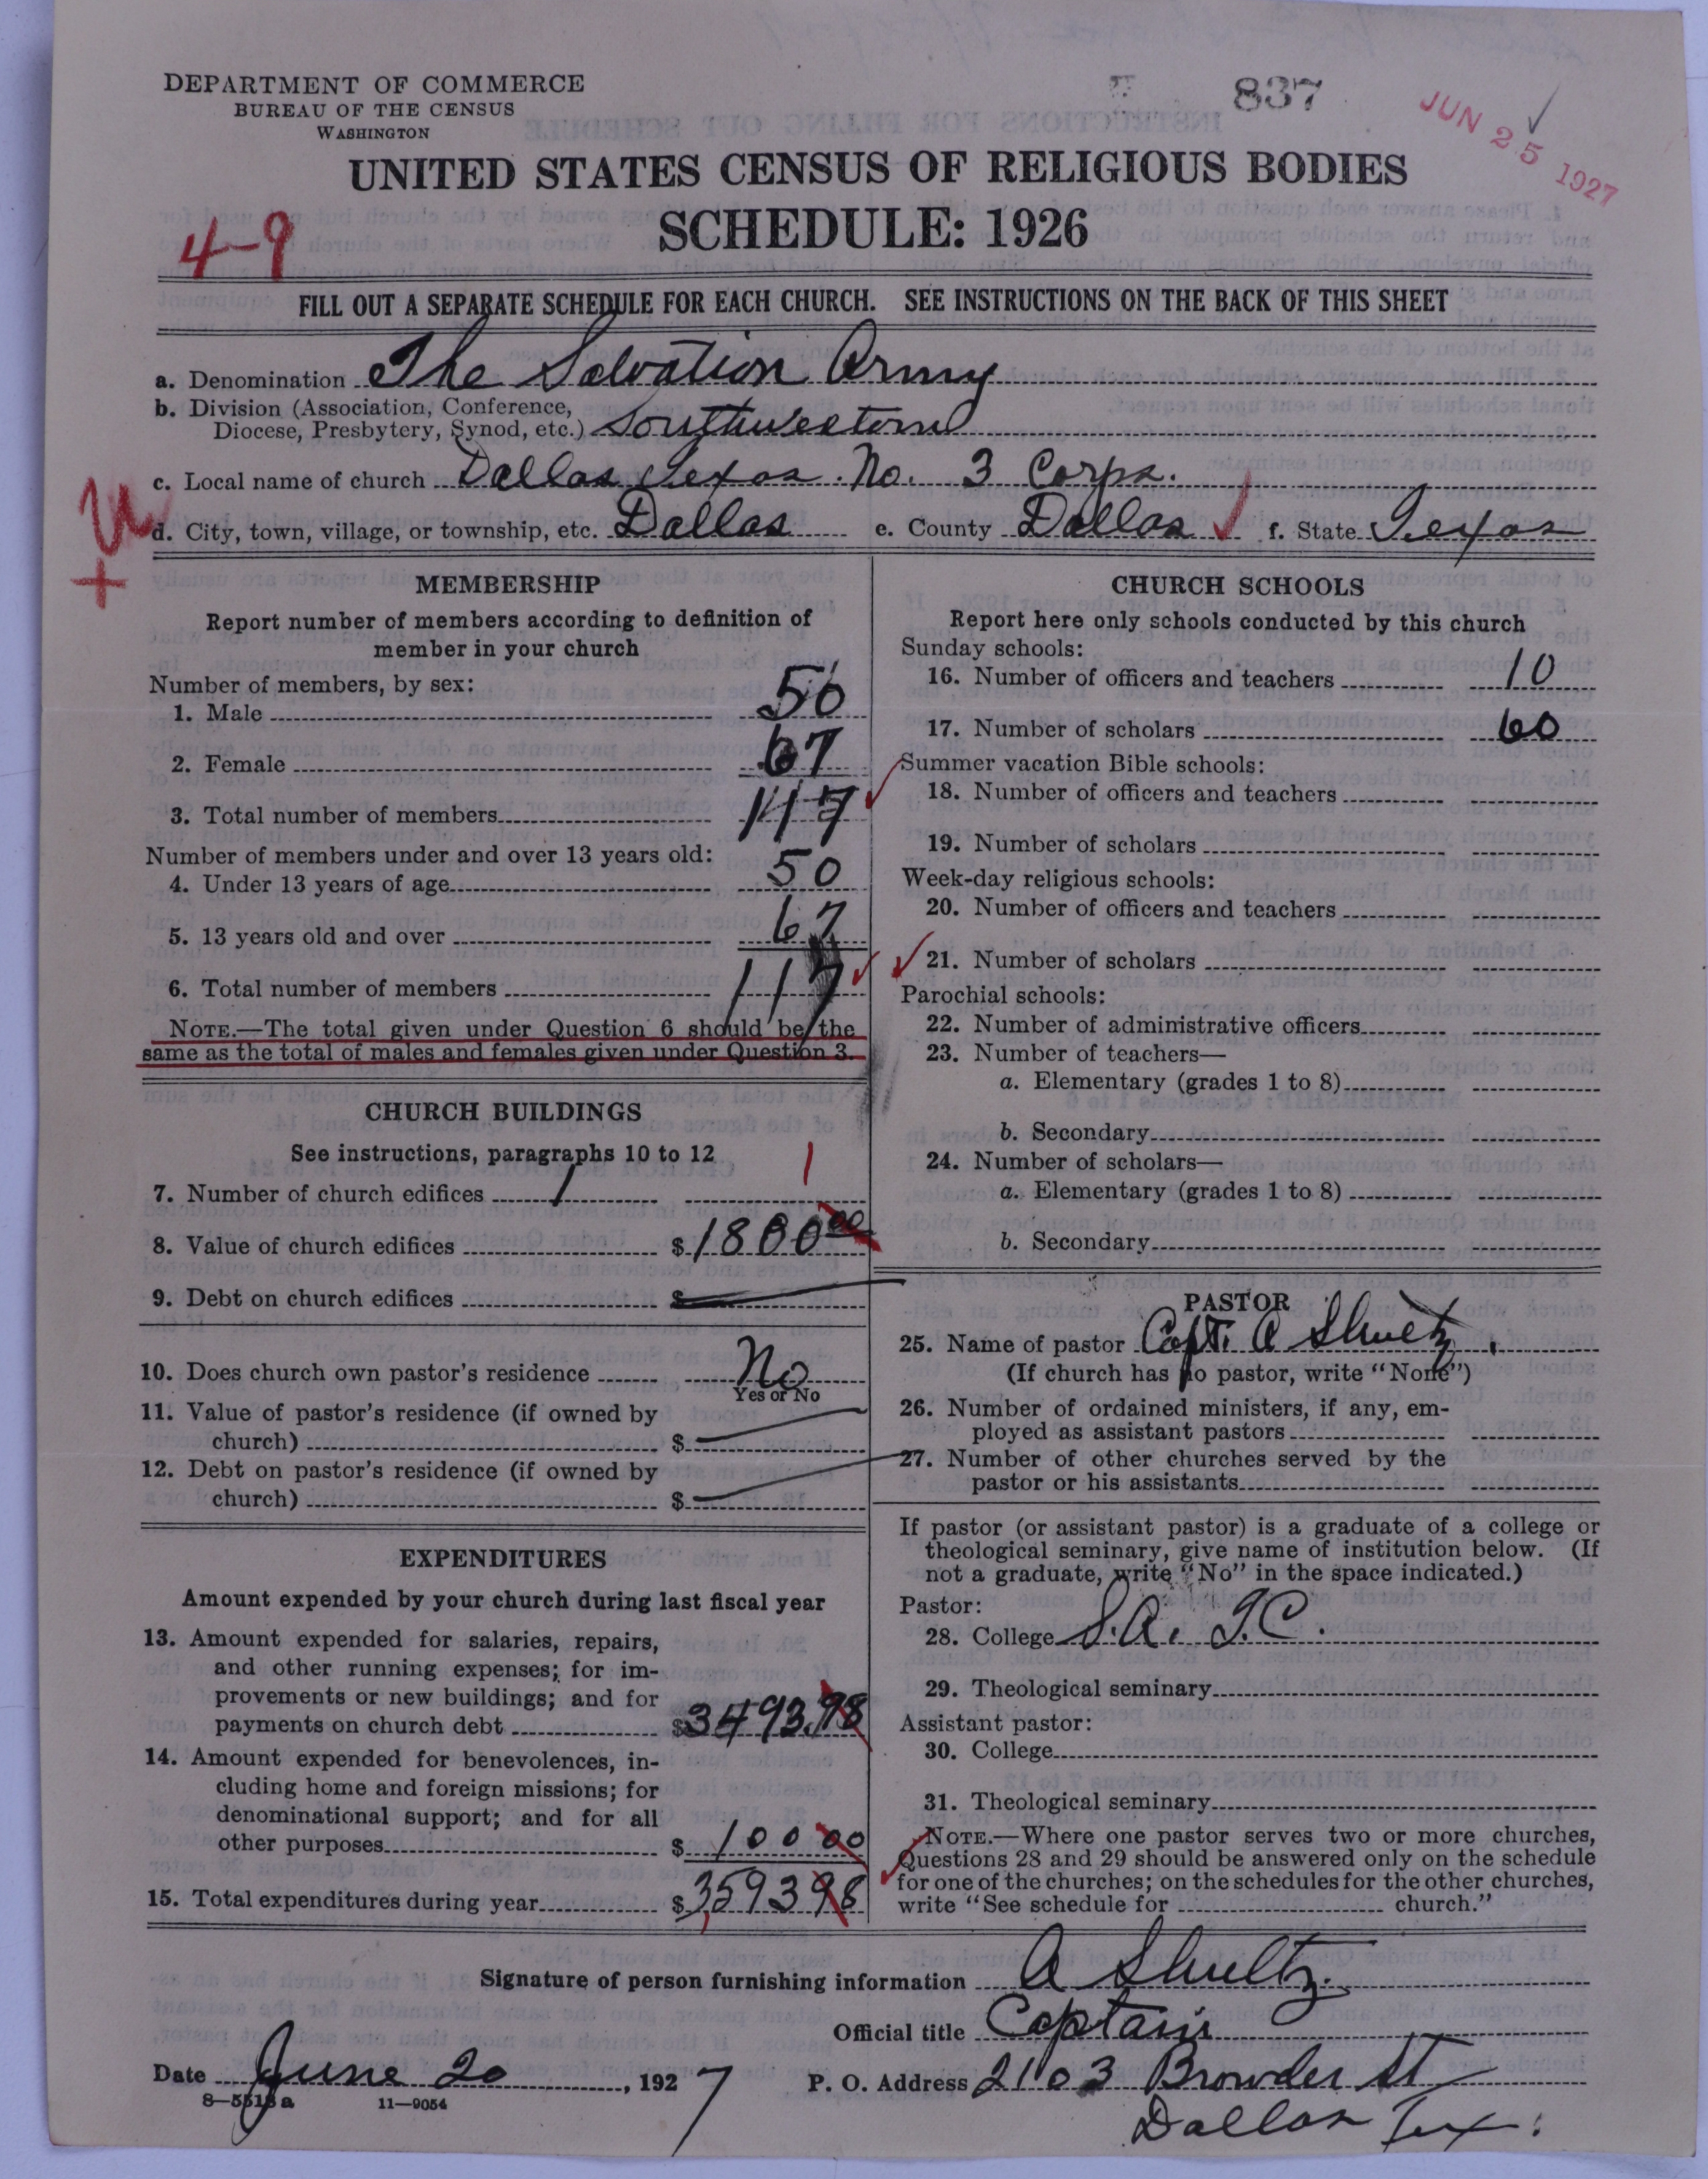 DEPARTMENT OF COMMERCE
BUREAU OF THE CENSUS
WASHINGTON
837
JUN 25 1927
UNITED STATES CENSUS OF RELIGIOUS BODIES
SCHEDULE: 1926
4-9
FILL OUT A SEPARATE SCHEDULE FOR EACH CHURCH. SEE INSTRUCTIONS ON THE BACK OF THIS SHEET
a. Denomination The Salvation Army
b. Division (Association, Conference,
Diocese, Presbytery, Synod, etc.) Southwestern
c. Local name of church Dallas Texas No. 3 Corps.
d. City, town, village, or township, etc. Dallas e. County Dallas f. State Texas
MEMBERSHIP
Report number of members according to definition of
member in your church
Number of members, by sex:
1. Male 50
2. Female 67
3. Total number of members 117
Number of members under and over 13 years old:
4. Under 13 years of age 50
5. 13 years old and over 67
6. Total number of members 117
NOTE.—The total given under Question 6 should be the
same as the total of males and females given under Question 3.
CHURCH BUILDINGS
See instructions, paragraphs 10 to 12
7. Number of church edifices 1 1
8. Value of church edifices $ 1800 00
9. Debt on church edifices $
10. Does church own pastor's residence No
Yes or No
11. Value of pastor's residence (if owned by
church) $
12. Debt on pastor's residence (if owned by
church) $
EXPENDITURES
Amount expended by your church during last fiscal year
13. Amount expended for salaries, repairs,
and other running expenses; for im-
provements or new buildings; and for
payments on church debt $ 3493.98
14. Amount expended for benevolences, in-
cluding home and foreign missions; for
denominational support; and for all
other purposes $ 100 00
15. Total expenditures during year $ 3593 98
CHURCH SCHOOLS
Report here only schools conducted by this church
Sunday schools:
16. Number of officers and teachers 10
17. Number of scholars 60
Summer vacation Bible schools:
18. Number of officers and teachers
19. Number of scholars
Week-day religious schools:
20. Number of officers and teachers
21. Number of scholars
Parochial schools:
22. Number of administrative officers
23. Number of teachers—
a. Elementary (grades 1 to 8)
b. Secondary
24. Number of scholars—
a. Elementary (grades 1 to 8)
b. Secondary
PASTOR
25. Name of pastor Capt. A Shultz.
(If church has no pastor, write "None")
26. Number of ordained ministers, if any, em-
ployed as assistant pastors
27. Number of other churches served by the
pastor or his assistants
If pastor (or assistant pastor) is a graduate of a college or
theological seminary, give name of institution below. (If
not a graduate, write "No" in the space indicated.)
Pastor:
28. College S.A. T.C.
29. Theological seminary
Assistant pastor:
30. College
31. Theological seminary
NOTE.—Where one pastor serves two or more churches,
Questions 28 and 29 should be answered only on the schedule
for one of the churches; on the schedules for the other churches,
write "See schedule for church."
Signature of person furnishing information A Shultz.
Official title Captain
Date June 20, 1927 P. O. Address 2103 Browder St
8—5513a 11—9054
Dallas Tex.